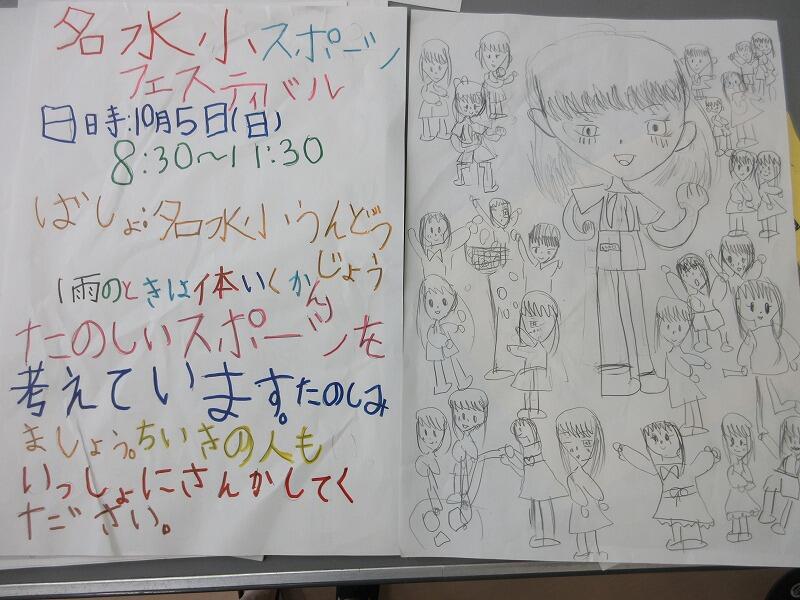 名水小スポーツ
フェスティバル
日時:10月5日(日)
8:30～11:30
ばしょ:名水小うんどう
じょう
(雨のときは体いくかん)
たのしいスポーツを
考えています。たのしみ
ましょう。ちいきの人も
いっしょにさんかしてく
ださい。